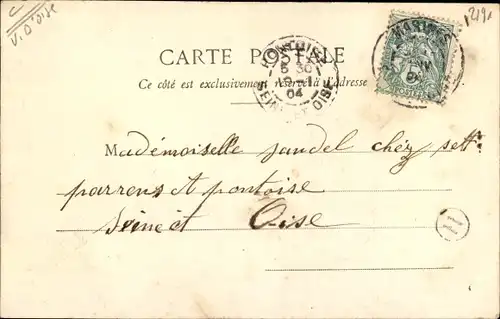 V. D'OISE
2191
CARTE POSTALE
Ce côté est exclusivement réservé à l'adresse
PONTOISE
5 30
04
SEINE ET OISE
Mademoiselle jandel chéz sett
parrens At pontoise
Seine et Oise